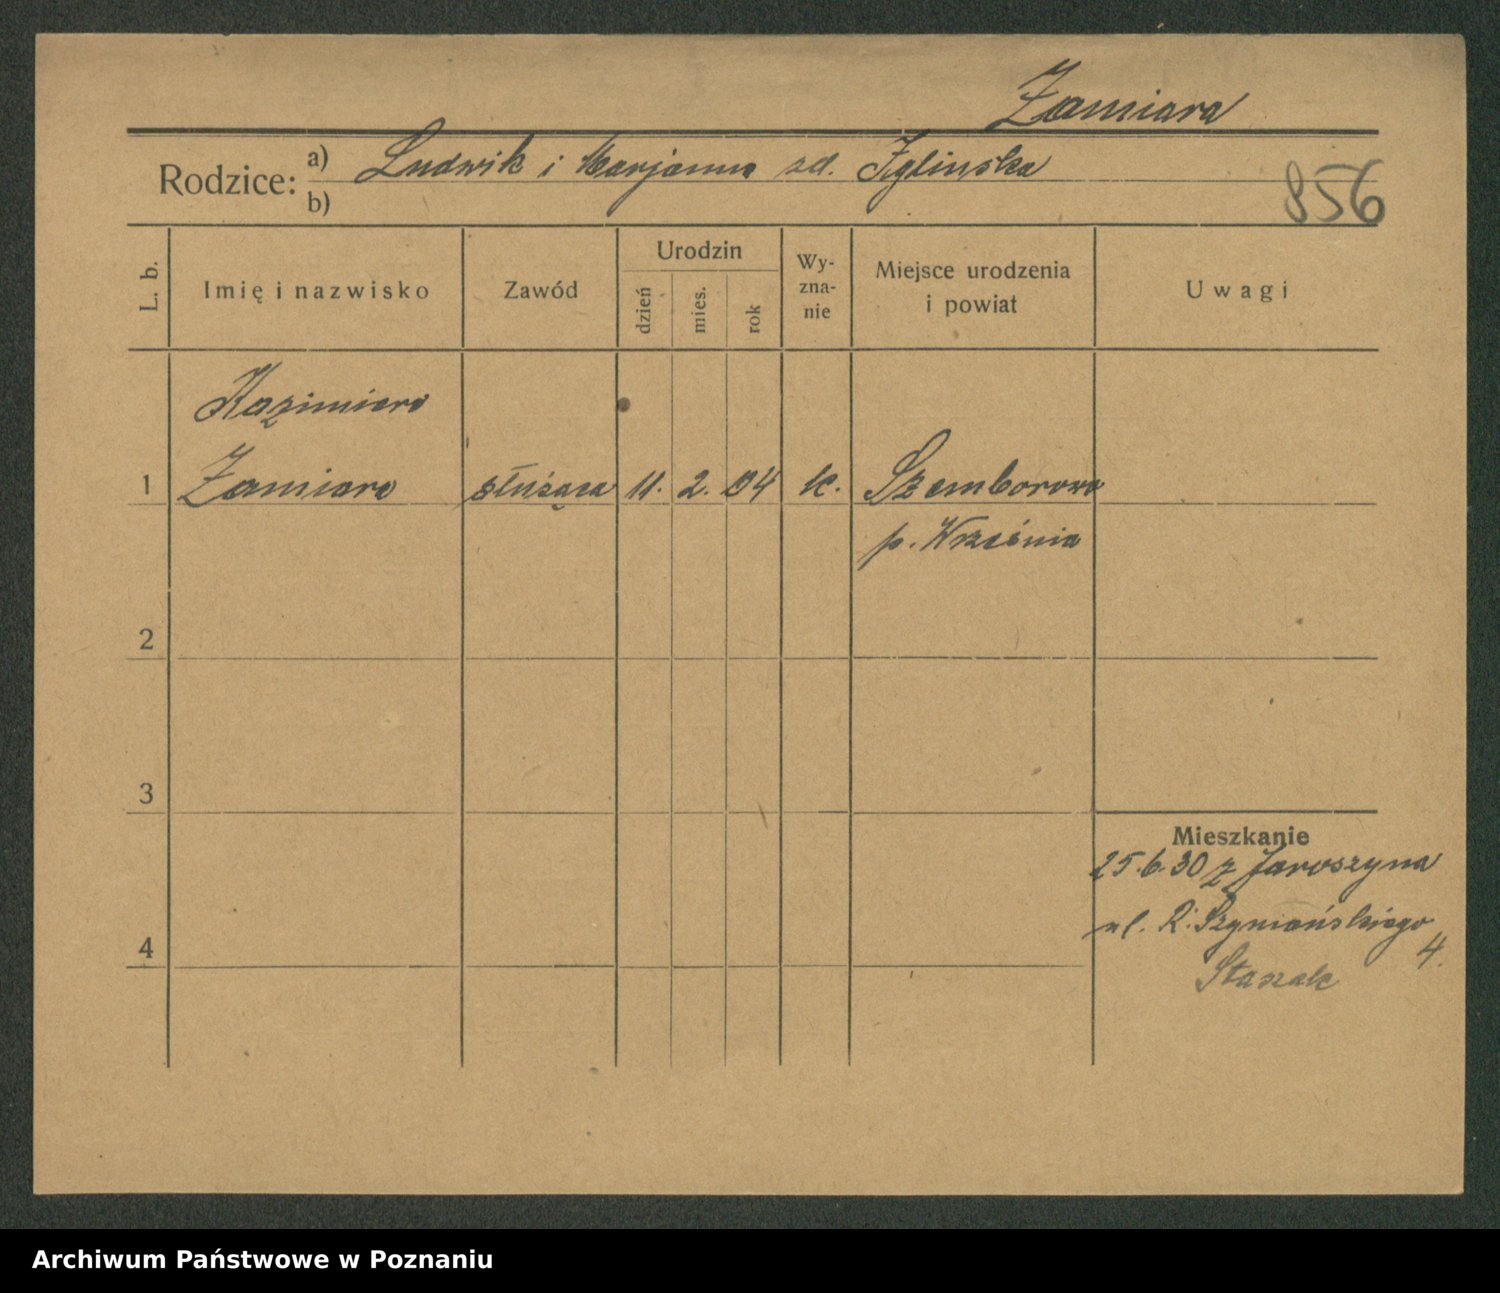 Zamiara
Rodzice: a) Ludwik i Marjanna zd.
b)
856
L. b. Imię i nazwisko Zawód Urodzin dzień mies. rok Wy-zna-nie Miejsce urodzenia i powiat Uwagi
Kazimiera
1 Zamiara służąca 11. 2. 04 k. Szemborowo
p. Września
2
3
Mieszkanie
25.6.30 z Jaroszyna
ul. R. Szymańskiego
4
4.
Staszak
Archiwum Państwowe w Poznaniu